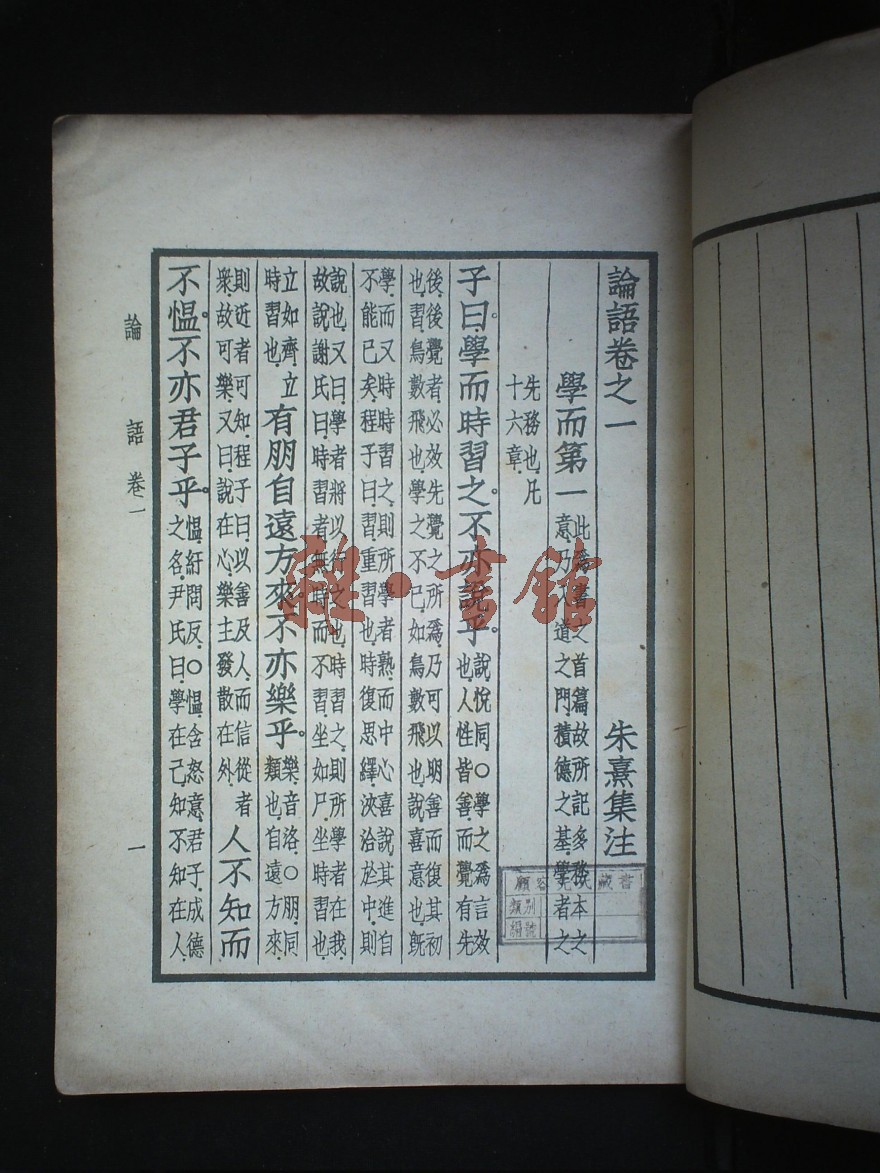 論語卷之一 朱熹集注
學而第一 此爲書之首篇.故所記多務本之
意.乃入道之門.積德之基.學者之
先務也.凡
十六章.
子曰.學而時習之.不亦說乎. 說悅同.○學之爲言效
也.人性皆善.而覺有先
後.後覺者.必效先覺之所爲.乃可以明善而復其初
也.習.鳥數飛也.學之不已.如鳥數飛也.說.喜意也.旣
學而又時時習之.則所學者熟.而中心喜說.其進自
不能已矣.程子曰.習.重習也.時復思繹.浹洽於中.則
說也.又曰.學者.將以行之也.時習之.則所學者在我.
故說.謝氏曰.時習者.無時而不習.坐如尸.坐時習也.
立如齊.立
時習也. 有朋自遠方來.不亦樂乎. 樂.音洛.○朋.同
類也.自遠方來.
則近者可知.程子曰.以善及人.而信從者
衆.故可樂.又曰.說在心.樂主發散.在外. 人不知而
不慍.不亦君子乎. 慍.紆問反.○慍.含怒意.君子.成德
之名.尹氏曰.學在己.知不知在人.
論語 卷一 一
雜·書館
類別
編號